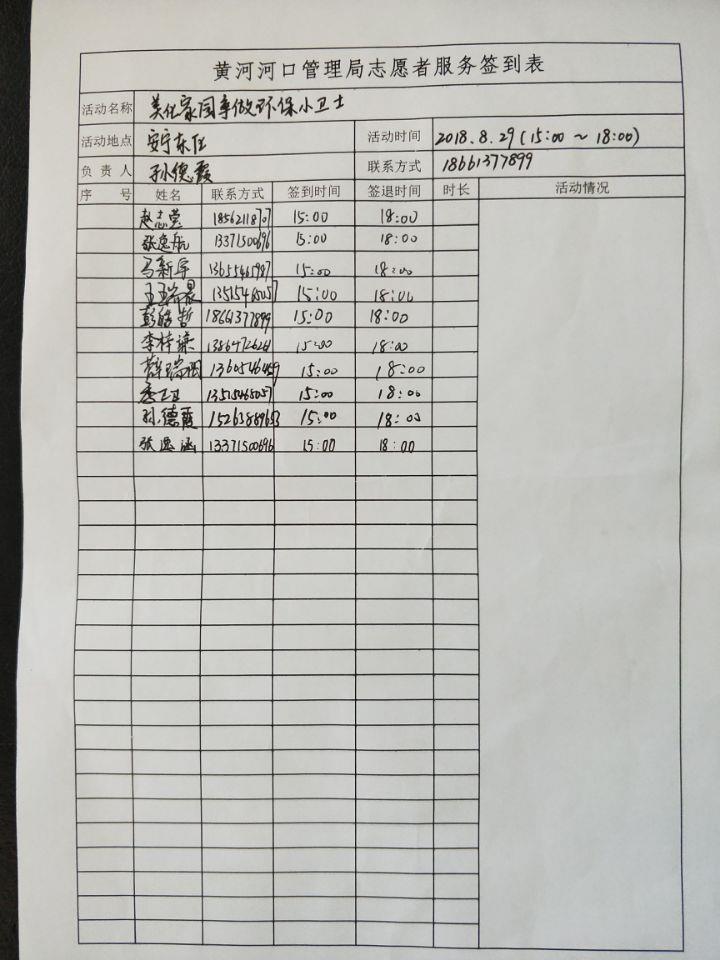 黄河河口管理局志愿者服务签到表
活动名称 美化家园争做环保小卫士
活动地点 安宁东区 活动时间 2018.8.29(15:00 ~ 18:00)
负责人 孙德霞 联系方式 18661377899
序号 姓名 联系方式 签到时间 签退时间 时长 活动情况
赵志莹 18562118707 15:00 18:00
张逸航 13371500696 15:00 18:00
马新宇 13655461987 15:00 18:00
王瑞晨 13515465057 15:00 18:00
彭皓哲 18661377899 15:00 18:00
李梓谦 15:00 18:00
薛瑞 15:00 18:00
13515465057 15:00 18:00
孙德霞 15263889653 15:00 18:00
张逸涵 13371500696 15:00 18:00